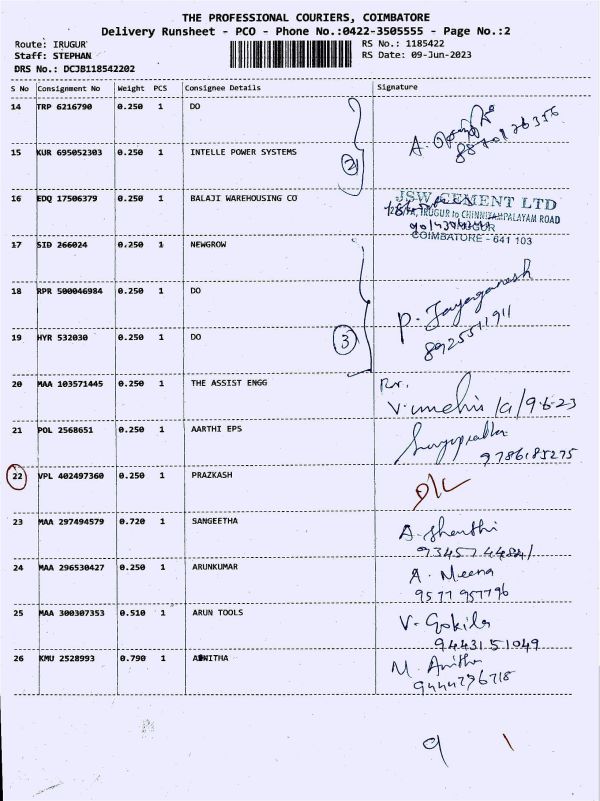 THE PROFESSIONAL COURIERS, COIMBATORE
Delivery Runsheet - PCO - Phone No.:0422-3505555 - Page No.:2
Route: IRUGUR RS No.: 1185422
Staff: STEPHAN RS Date: 09-Jun-2023
DRS No.: DCJB118542202
S No Consignment No Weight PCS Consignee Details Signature
14 TRP 6216790 0.250 1 DO
A.
15 KUR 695052303 0.250 1 INTELLE POWER SYSTEMS
2
16 EDQ 17506379 0.250 1 BALAJI WAREHOUSING CO
JSW CEMENT LTD
IRUGUR to CHINNIYAMPALAYAM ROAD
IRUGUR
COIMBATORE - 641 103
17 SID 266024 0.250 1 NEWGROW
18 RPR 500046984 0.250 1 DO
P. Jayaganesh
8925511911
19 HYR 532030 0.250 1 DO
3
20 MAA 103571445 0.250 1 THE ASSIST ENGG
9-6-23
21 POL 2568651 0.250 1 AARTHI EPS
9786185275
22 VPL 402497360 0.250 1 PRAZKASH
D/L
23 MAA 297494579 0.720 1 SANGEETHA
A. Shanthi
9345744841
24 MAA 296530427 0.250 1 ARUNKUMAR
A. Meena
9577957796
25 MAA 300307353 0.510 1 ARUN TOOLS
V. Gokila
9443151049
26 KMU 2528993 0.790 1 ANITHA
M. Anitha
9444796718
9 1